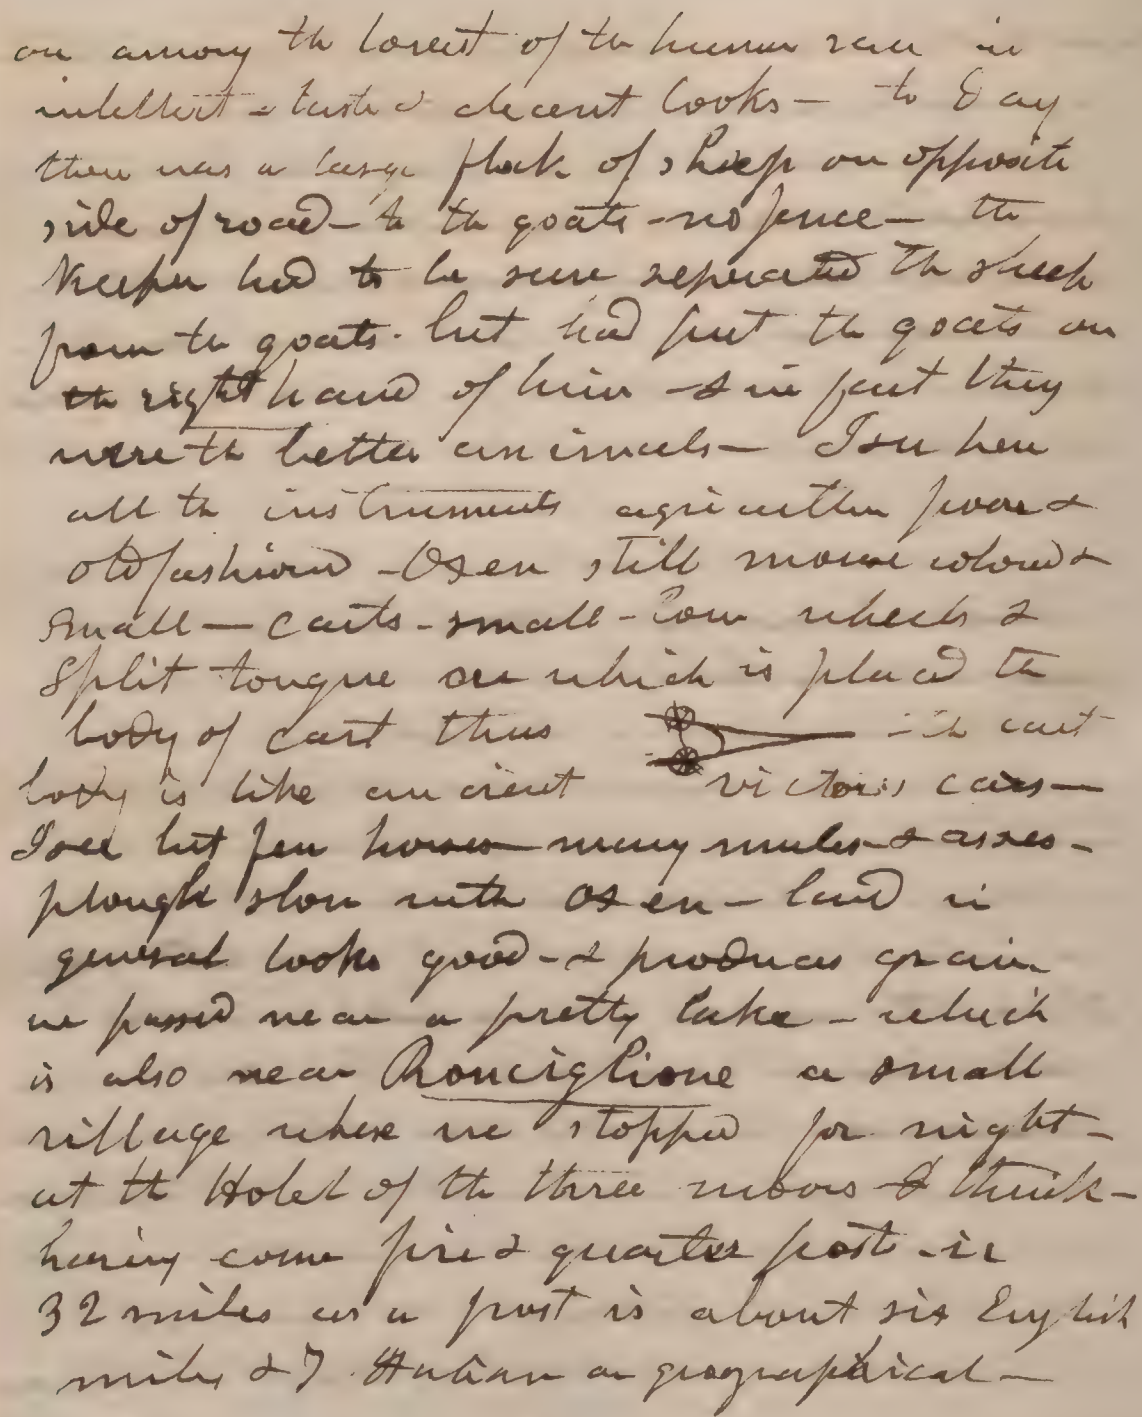 are among the lowest of the human race in
intellect - taste & decent looks - to day
there was a large flock of sheep on opposite
side of road - to the goats - no fence - the
Keeper had to be sure separated the sheep
from the goats. but had put the goats on
the right hand of him - & in fact they
were the better animals - I see here
all the instruments agriculture poor &
old fashioned - Oxen still mouse coloured &
small - carts - small - low wheels &
split tongue on which is placed the
body of cart thus - the cart
body is like ancient victors cars -
I see but few horses - many mules & asses -
plough slow with oxen - land in
general looks good - & produces grain
we passed near a pretty lake - which
is also near Ronciglione a small
village where we stopped for night -
at the Hotel of the three moors I think -
having come five & quarter post - ie
32 miles as a post is about six English
miles & 7 Italian or geographical -